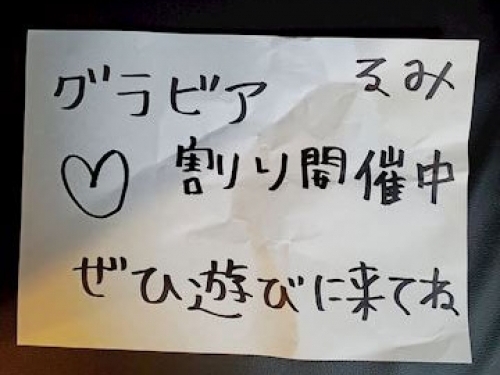 グラビア るみ
♡ 割りり開催中
ぜひ遊びに来てね